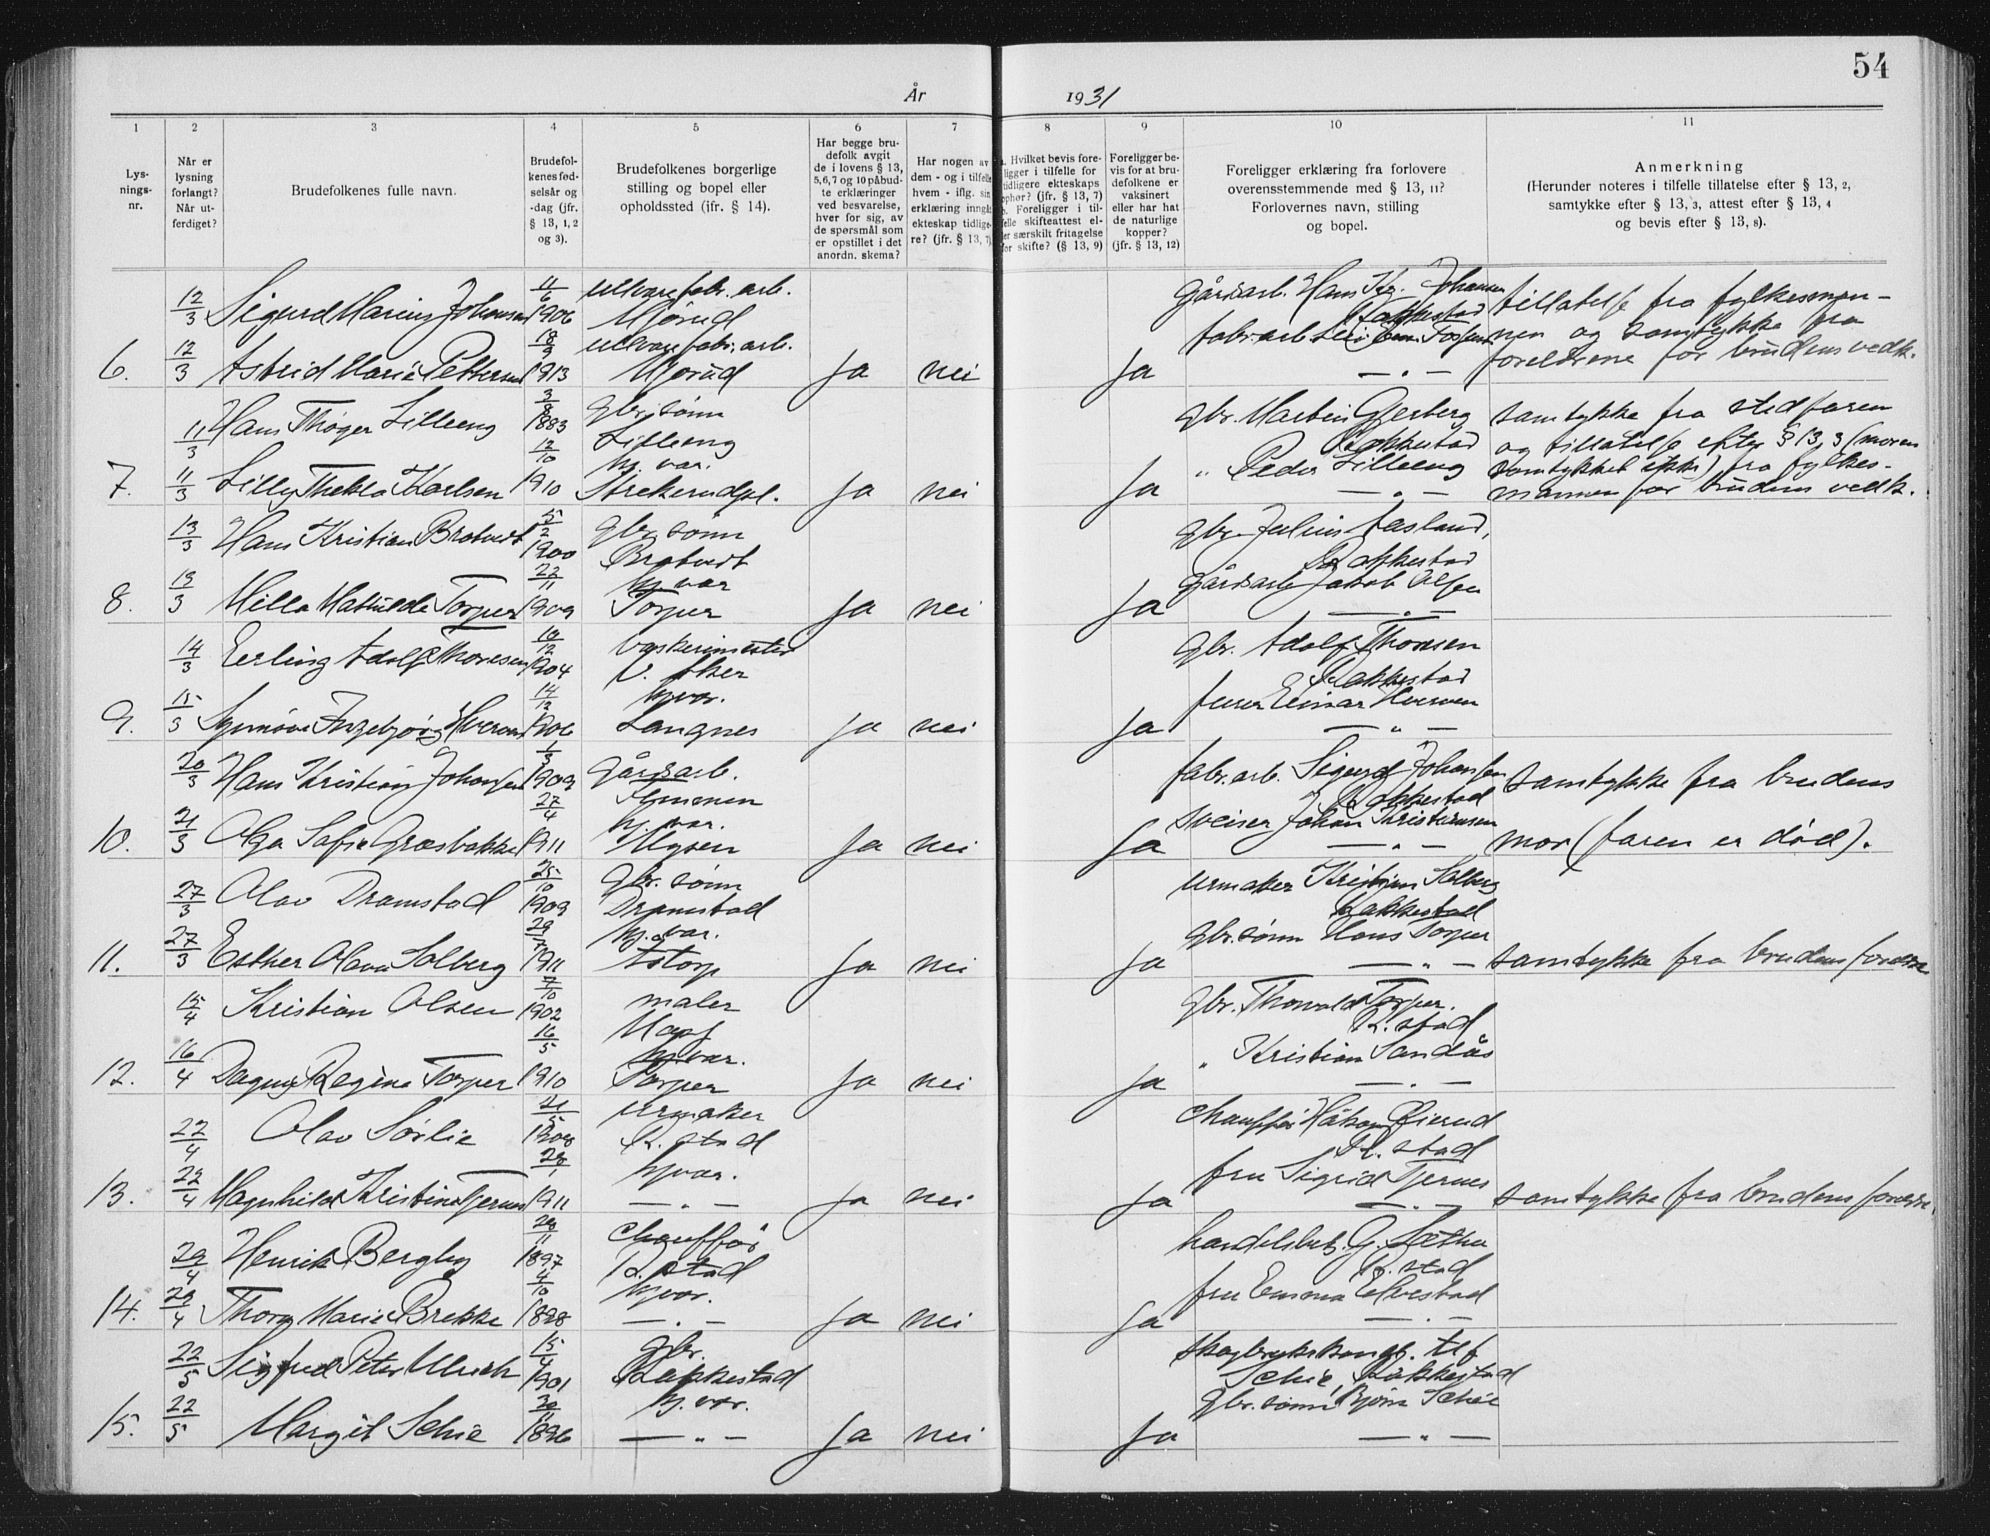 54
År 1931
1 2 3 4 5 6 7 8 9 10 11
Lys-
nings-
nr.
Når er
lysning
forlangt?
Når ut-
ferdiget?
Brudefolkenes fulle navn.
Brudefol-
kenes fød-
selsår og
-dag (jfr.
§ 13, 1, 2
og 3).
Brudefolkenes borgerlige
stilling og bopel eller
opholdssted (jfr. § 14).
Har begge bru-
defolk avgit
de i lovens § 13,
5,6,7 og 10 påbud-
te erklæringer
ved besvarelse,
hver for sig, av
de spørsmål som
er opstillet i det
anordn. skema?
Har nogen av
dem - og i tilfelle
hvem - iflg. sin
erklæring inngå
ekteskap tidlige-
re? (jfr. § 13, 7)
a. Hvilket bevis fore-
ligger i tilfelle for
tidligere ekteskaps
ophør? (jfr. § 13, 7)
b. Foreligger i til-
felle skifteattest el-
ler særskilt fritagelse
for skifte? (§ 13, 9)
Foreligger be-
vis for at bru-
defolkene er
vaksinert
eller har hat
de naturlige
kopper?
(jfr. § 13, 12)
Foreligger erklæring fra forlovere
overensstemmende med § 13, 11?
Forlovernes navn, stilling
og bopel.
Anmerkning
(Herunder noteres i tilfelle tillatelse efter § 13, 2,
samtykke efter § 13, 3, attest efter § 13, 4
og bevis efter § 13, 8).
12/3 Sigurd Marius Johansen 11/6 1906 ullvarefabr. arb. Mjørud gårdsarb. Hans Kr. Johansen Rakkestad tillatelse fra fylkesman-
6. 12/3 Astrid Marie Pettersen 18/9 1913 ullvarefabr. arb. Mjørud Ja nei Ja fabr.arb. — „ — nen og samtykke fra
foreldrene for brudens vedk.
11/3 Hans Thøger Lilleeng 3/8 1883 gbr.sønn Lilleeng gbr. Martin Gjerberg Rakkestad samtykke fra stedfaren
og tillatelse efter § 13, 3 (moren
7. 11/3 Lilly Thekla Karlsen 12/10 1910 hj. var. Strekerudpl. Ja nei Ja „ Peder Lilleeng — „ — samtykket ikke) fra fylkes-
mannen for brudens vedk.
13/3 Hans Kristian Bratvedt 5/2 1900 gbr. sønn Bratvedt gbr. Julius Aasland, Rakkestad
8. 13/3 Milla Mathilde Torper 22/11 1909 hj. var Torper Ja nei Ja gårdsarb. Jakob Olsen — „ —
14/3 Erling Adolf Thoresen 10/12 1904 vaskerimester V. Aker gbr. Adolf Thoresen Rakkestad
9. 15/3 Synnøve Ingebjørg 14/12 1906 hj. var. Langnes Ja nei Ja Einar — „ —
20/3 Hans Kristian Johansen 1/3 1909 gårdsarb. fabr.arb. Sigurd Johansen Rakkestad samtykke fra brudens
10. 21/3 Olga Sofie Græsbakke 27/4 1911 hj. var. Ja nei Ja sveiser Johan Kristiansen — „ — mor (faren er død).
27/3 Olav Dramstad 25/10 1909 gbr. sønn Dramstad urmaker Kristian Solberg Rakkestad
11. 27/3 Esther Olava Solberg 29/7 1911 hj. var. Åstorp Ja nei Ja gbr.sønn Hans Torper — „ — samtykke fra brudens foreldre
15/4 Kristian Olsen 7/10 1902 maler gbr. Thorvald Torper. R.stad
12. 16/4 Dagny Regine Torper 16/5 1910 hj. var. Torper Ja nei Ja „ Kristian Sandås — „ —
22/4 Olav Sørlie 1908 urmaker R. stad chauffør Håkon R. stad
13. 22/4 Magnhild Kristine Tjernes 1911 hj.var. — „ — Ja nei Ja fru Sigrid Tjernes — „ — samtykke fra brudens foreldre.
29/4 Henrik Bergby 29/11 1897 chauffør R. stad handelsbet. G. Sætha R. stad
14. 29/4 Thora Marie Brekke 4/10 1898 hj.var. — „ — Ja nei Ja fru Emma Elvestad — „ —
22/5 Sigfred Peter Ullrich 15/4 1901 gbr. Rakkestad Schie, Rakkestad
15. 22/5 Margit Schie 1896 hj. var. — „ — Ja nei Ja gbr.sønn Bjørn Schie — „ —